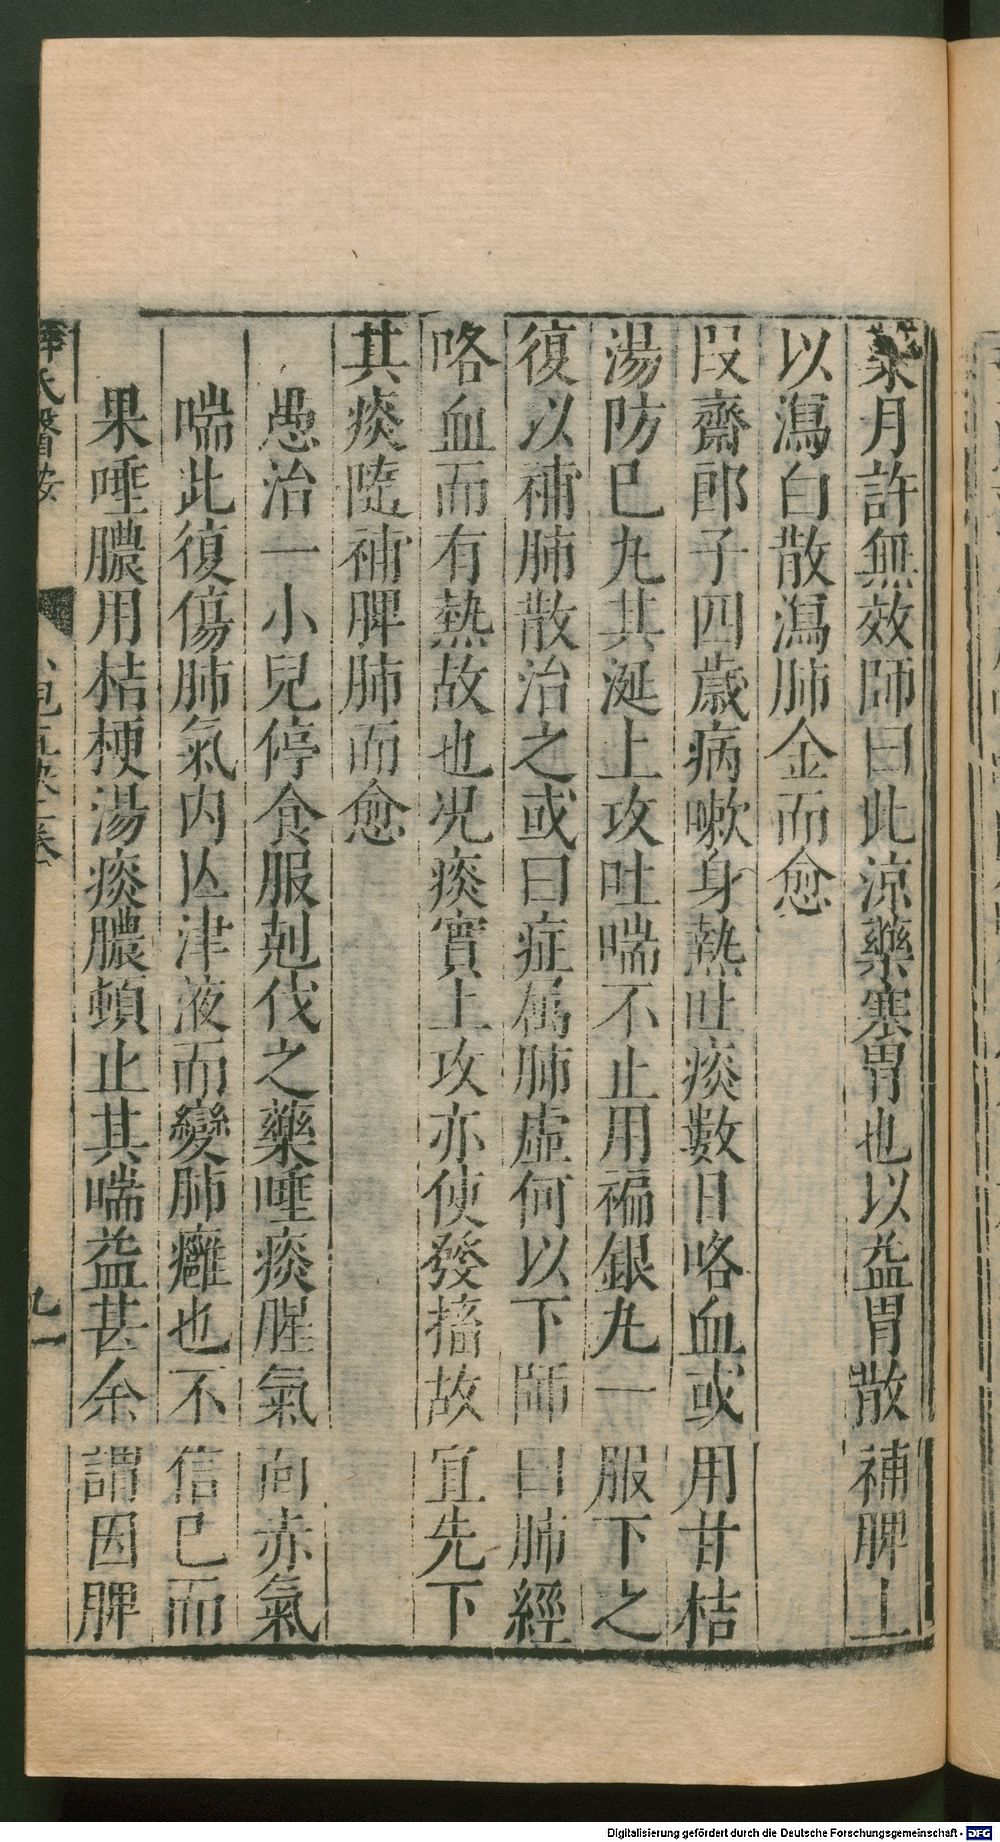 藥月許無效師曰此涼藥塞胃也以益胃散補脾土
以瀉白散瀉肺金而愈
段齋郎子四歲病嗽身熱吐痰數日咯血或用甘桔
湯防巳丸其涎上攻吐喘不止用褊銀丸一服下之
復以補肺散治之或曰症属肺虛何以下師曰肺經
咯血而有熱故也况痰實上攻亦使發搐故宜先下
其痰隨補脾肺而愈
愚治一小兒停食服剋伐之藥唾痰腥氣面赤氣
喘此復傷肺氣内亾津液而變肺癰也不信已而
果唾膿用桔梗湯痰膿頓止其喘益甚余謂因脾
薛氏醫按
九一
Digitalisierung gefördert durch die Deutsche Forschungsgemeinschaft - DFG